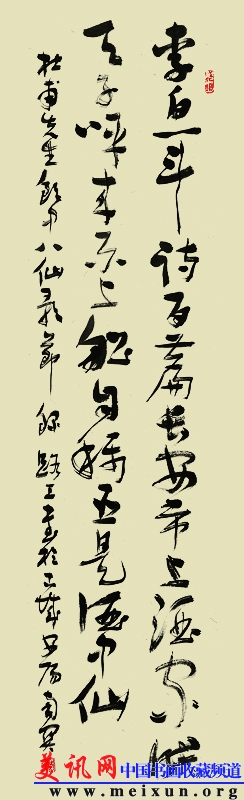 李白一斗诗百篇长安市上酒家眠
天子呼来不上船自称臣是酒中仙
杜甫先生饮中八仙歌节录
美讯网 中国书画收藏频道
www.meixun.org